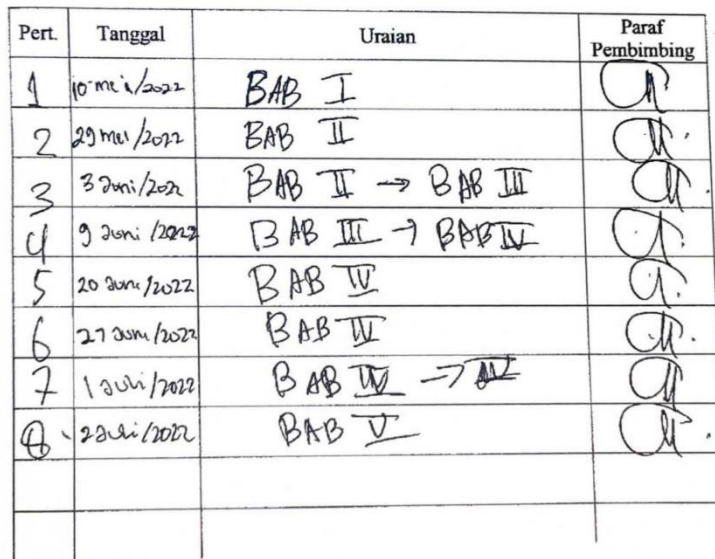 Pert. Tanggal Uraian Paraf Pembimbing
1 10-mei/2022 BAB I
2 29 mei/2022 BAB II
3 3 Juni/2022 BAB II → BAB III
4 9 Juni/2022 BAB III → BAB IV
5 20 Juni/2022 BAB IV
6 27 Juni/2022 BAB IV
7 1 Juli/2022 BAB IV →
8 2 Juli/2022 BAB V